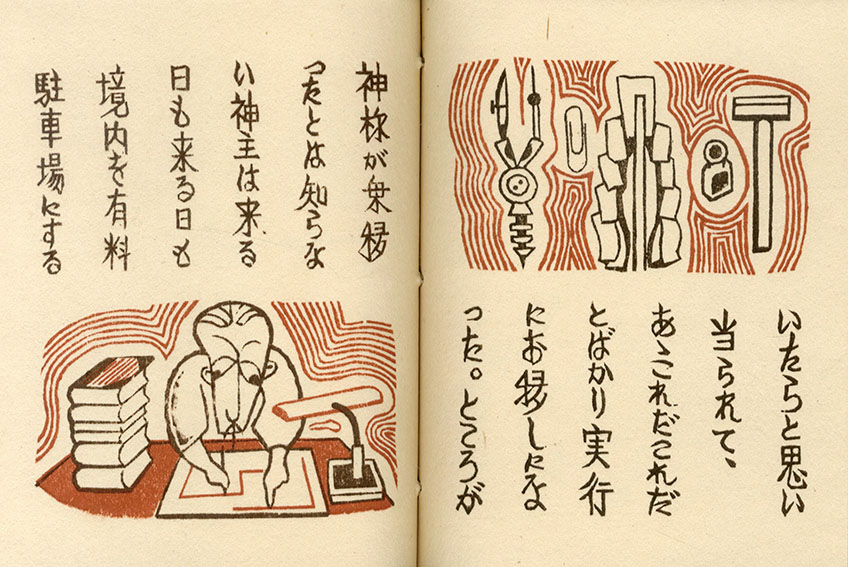 いたらと思い
当られて、
あゝこれだこれだ
とばかり実行
にお移しにな
った。ところが
神様が乗移
ったとは知らな
い神主は来る
日も来る日も
境内を有料
駐車場にする